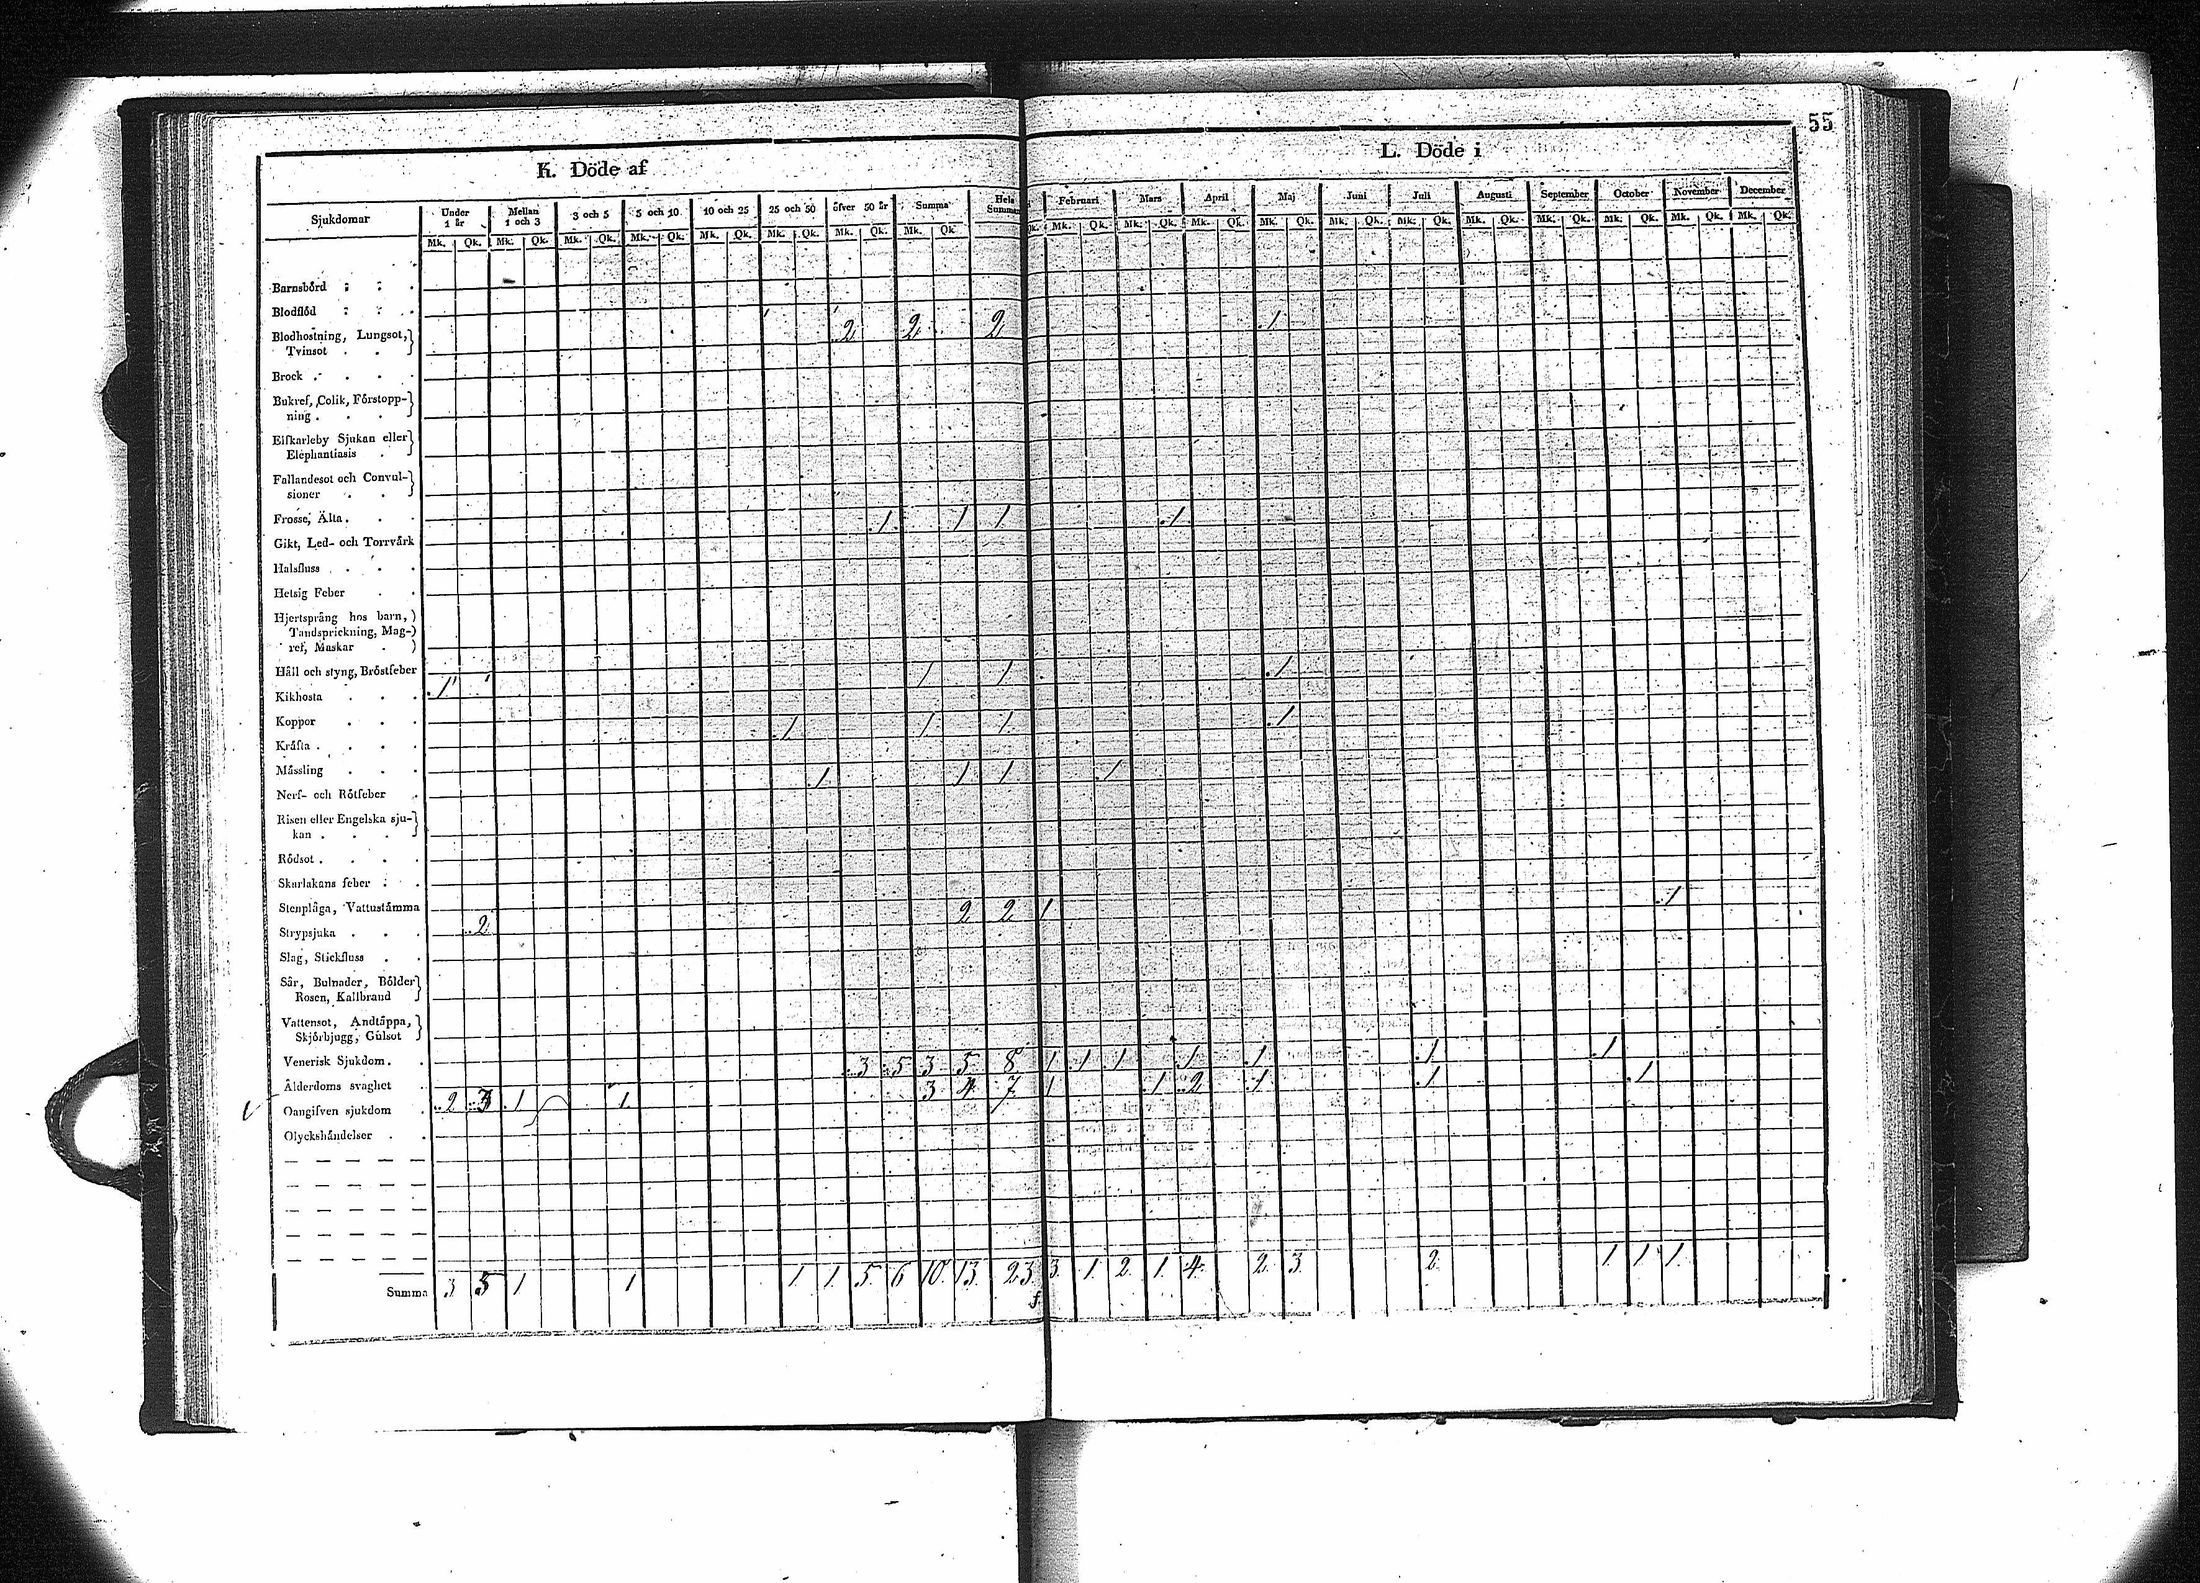 55
K. Döde af
L. Döde i
Sjukdomar Under 1 år Mellan 1 och 3 3 och 5 5 och 10 10 och 25 25 och 50 öfver 50 år Summa Hela Summan Februari Mars April Maj Juni Juli Augusti September October November December
Mk. Qk. Mk. Qk. Mk. Qk. Mk. Qk. Mk. Qk. Mk. Qk. Mk. Qk. Mk. Qk. Qk. Mk. Qk. Mk. Qk. Mk. Qk. Mk. Qk. Mk. Qk. Mk. Qk. Mk. Qk. Mk. Qk. Mk. Qk. Mk. Qk. Mk. Qk.
Barnsbörd
Blodflöd
Blodhostning, Lungsot, 2 2 2 1
Tvinsot
Brock
Bukref, Colik, Förstopp-
ning
Elfkarleby Sjukan eller
Elephantiasis
Fallandesot och Convul-
sioner
Frossa, Älta 1 1 1 1
Gikt, Led- och Torrvärk
Halsfluss
Hetsig Feber
Hjertsprång hos barn,
Tandsprickning, Mag-
ref, Maskar
Håll och styng, Bröstfeber 1 1 1
Kikhosta 1
Koppor 1 1 1 1
Kräfta
Mässling 1 1 1 1
Nerf- och Rötfeber
Risen eller Engelska sju-
kan
Rödsot
Skarlakans feber
Stenplåga, Vattustämma 2 2 1 1
Strypsjuka 2
Slag, Stickfluss
Sår, Bulnader, Bölder
Rosen, Kallbrand
Vattensot, Andtäppa,
Skjörbjugg, Gulsot
Venerisk Sjukdom 3 5 3 5 8 1 1 1 1 1 1 1
Ålderdoms svaghet 3 4 7 1 1 2 1 1 1
Oangifven sjukdom 2 3 1 1
Olyckshändelser
Summa 3 5 1 1 1 1 5 6 10 13 23 3 1 2 1 4 2 3 2 1 1 1